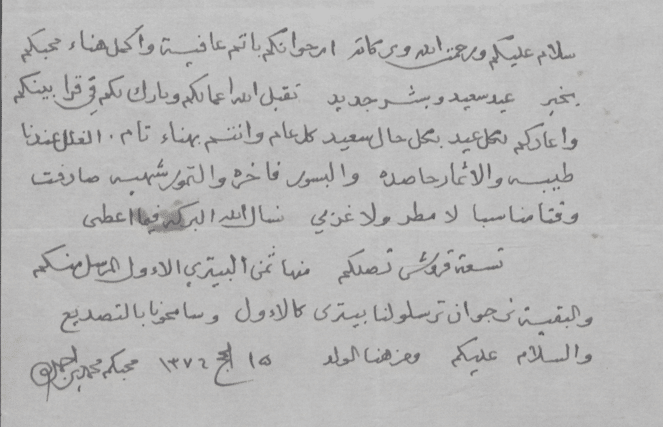 سلام عليكم ورحمة الله وبركاته ارجو انكم باتم عافية واكمل هناء محبكم
بخير عيد سعيد وبشر جديد تقبل الله اعمالكم وبارك لكم في قرابينكم
واعادكم لكل عيد بكل حال سعيد كل عام وانتم بهناء تام . الغلل عندنا
طيبه والاثمار حاصده والبسور فاخره والتمور شهيه صادفت
وقتا مناسبا لا مطر ولا غزمي نسال الله البركه فيما اعطى
تسعة قروش تصلكم منها ثمن البيتري الاول المرسل منكم
والبقية نرجو ان ترسلو لنا بيتري كالاول وسامحونا بالتصديع
والسلام عليكم ومن هنا الولد ١٥ الحج ١٣٧٤ محبكم محمد بن احمد